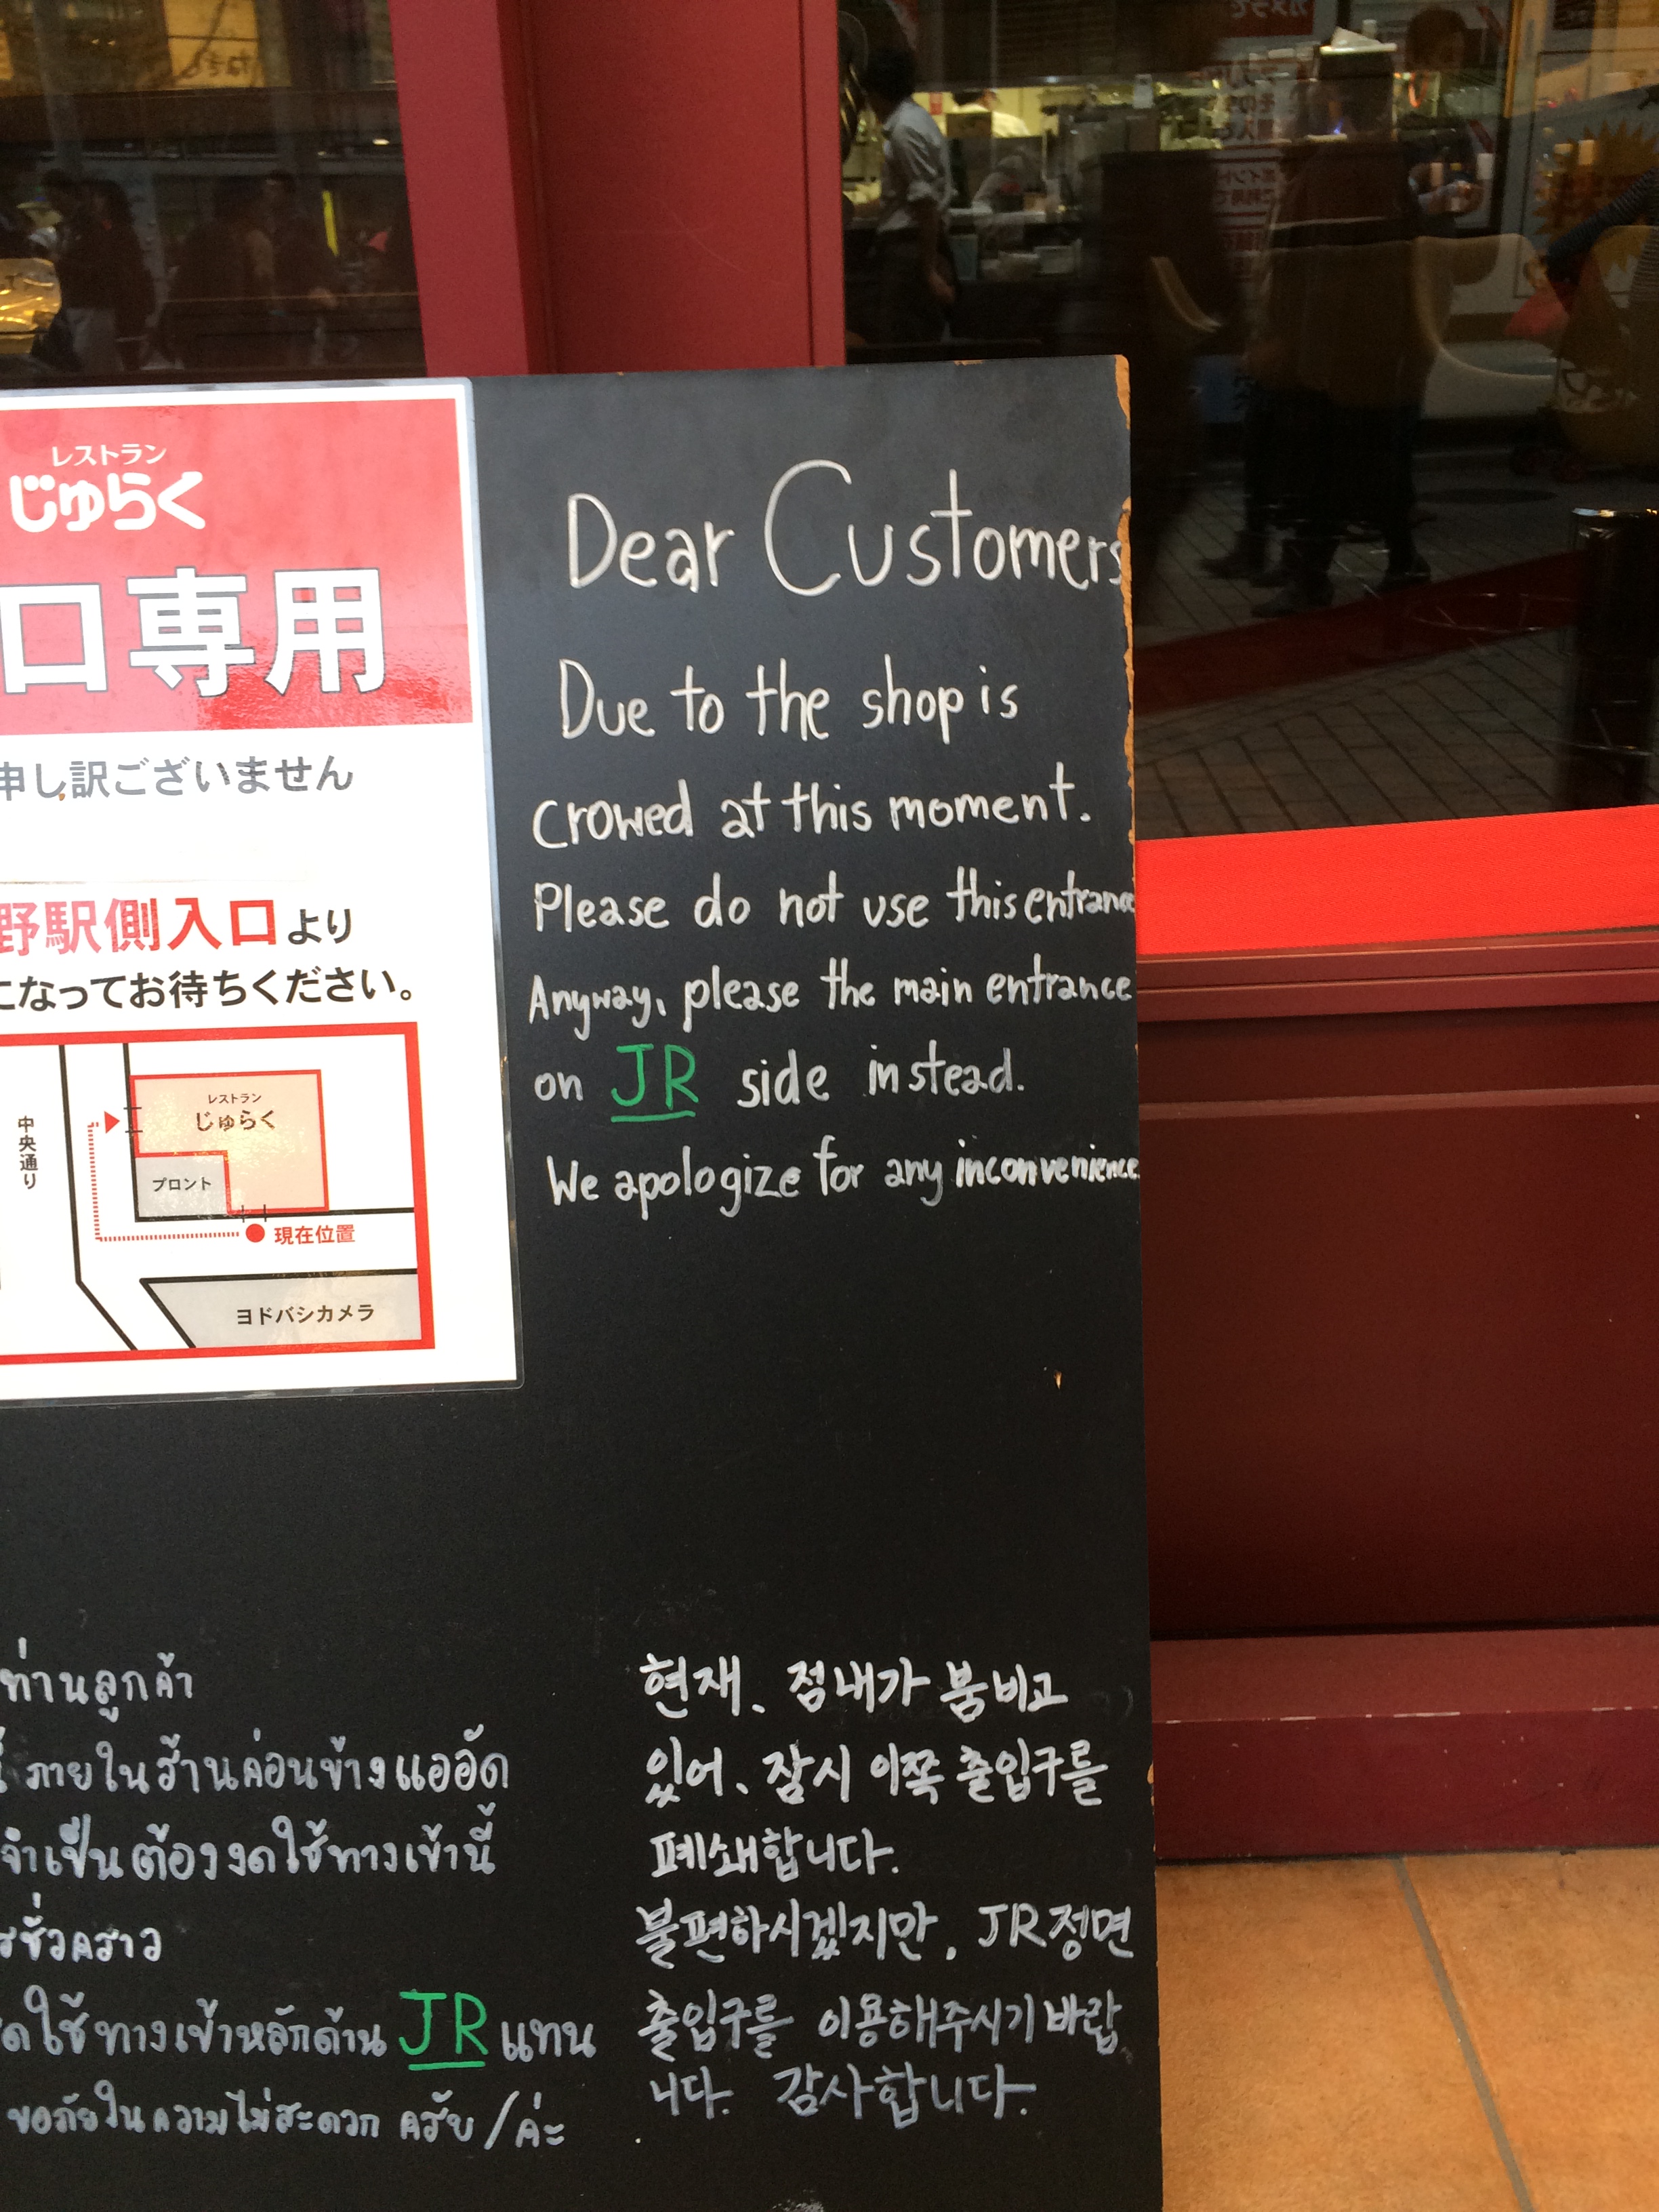 レストラン
じゅらく
口専用
申し訳ございません
野駅側入口より
になってお待ちください。
レストラン
じゅらく
中央通り
プロント
現在位置
ヨドバシカメラ
Dear Customers
Due to the shop is
crowed at this moment.
Please do not use this entrance
Anyway, please the main entrance
on JR side instead.
We apologize for any inconvenience.
ท่านลูกค้า
ภายในร้านค่อนข้างแออัด
จำเป็นต้องงดใช้ทางเข้านี้
ชั่วคราว
ใช้ทางเข้าหลักด้าน JR แทน
ขอภัยในความไม่สะดวก ครับ/ค่ะ
현재、점내가 붐비고
있어、잠시 이쪽 출입구를
폐쇄합니다.
불편하시겠지만, JR정면
출입구를 이용해주시기 바랍
니다. 감사합니다.